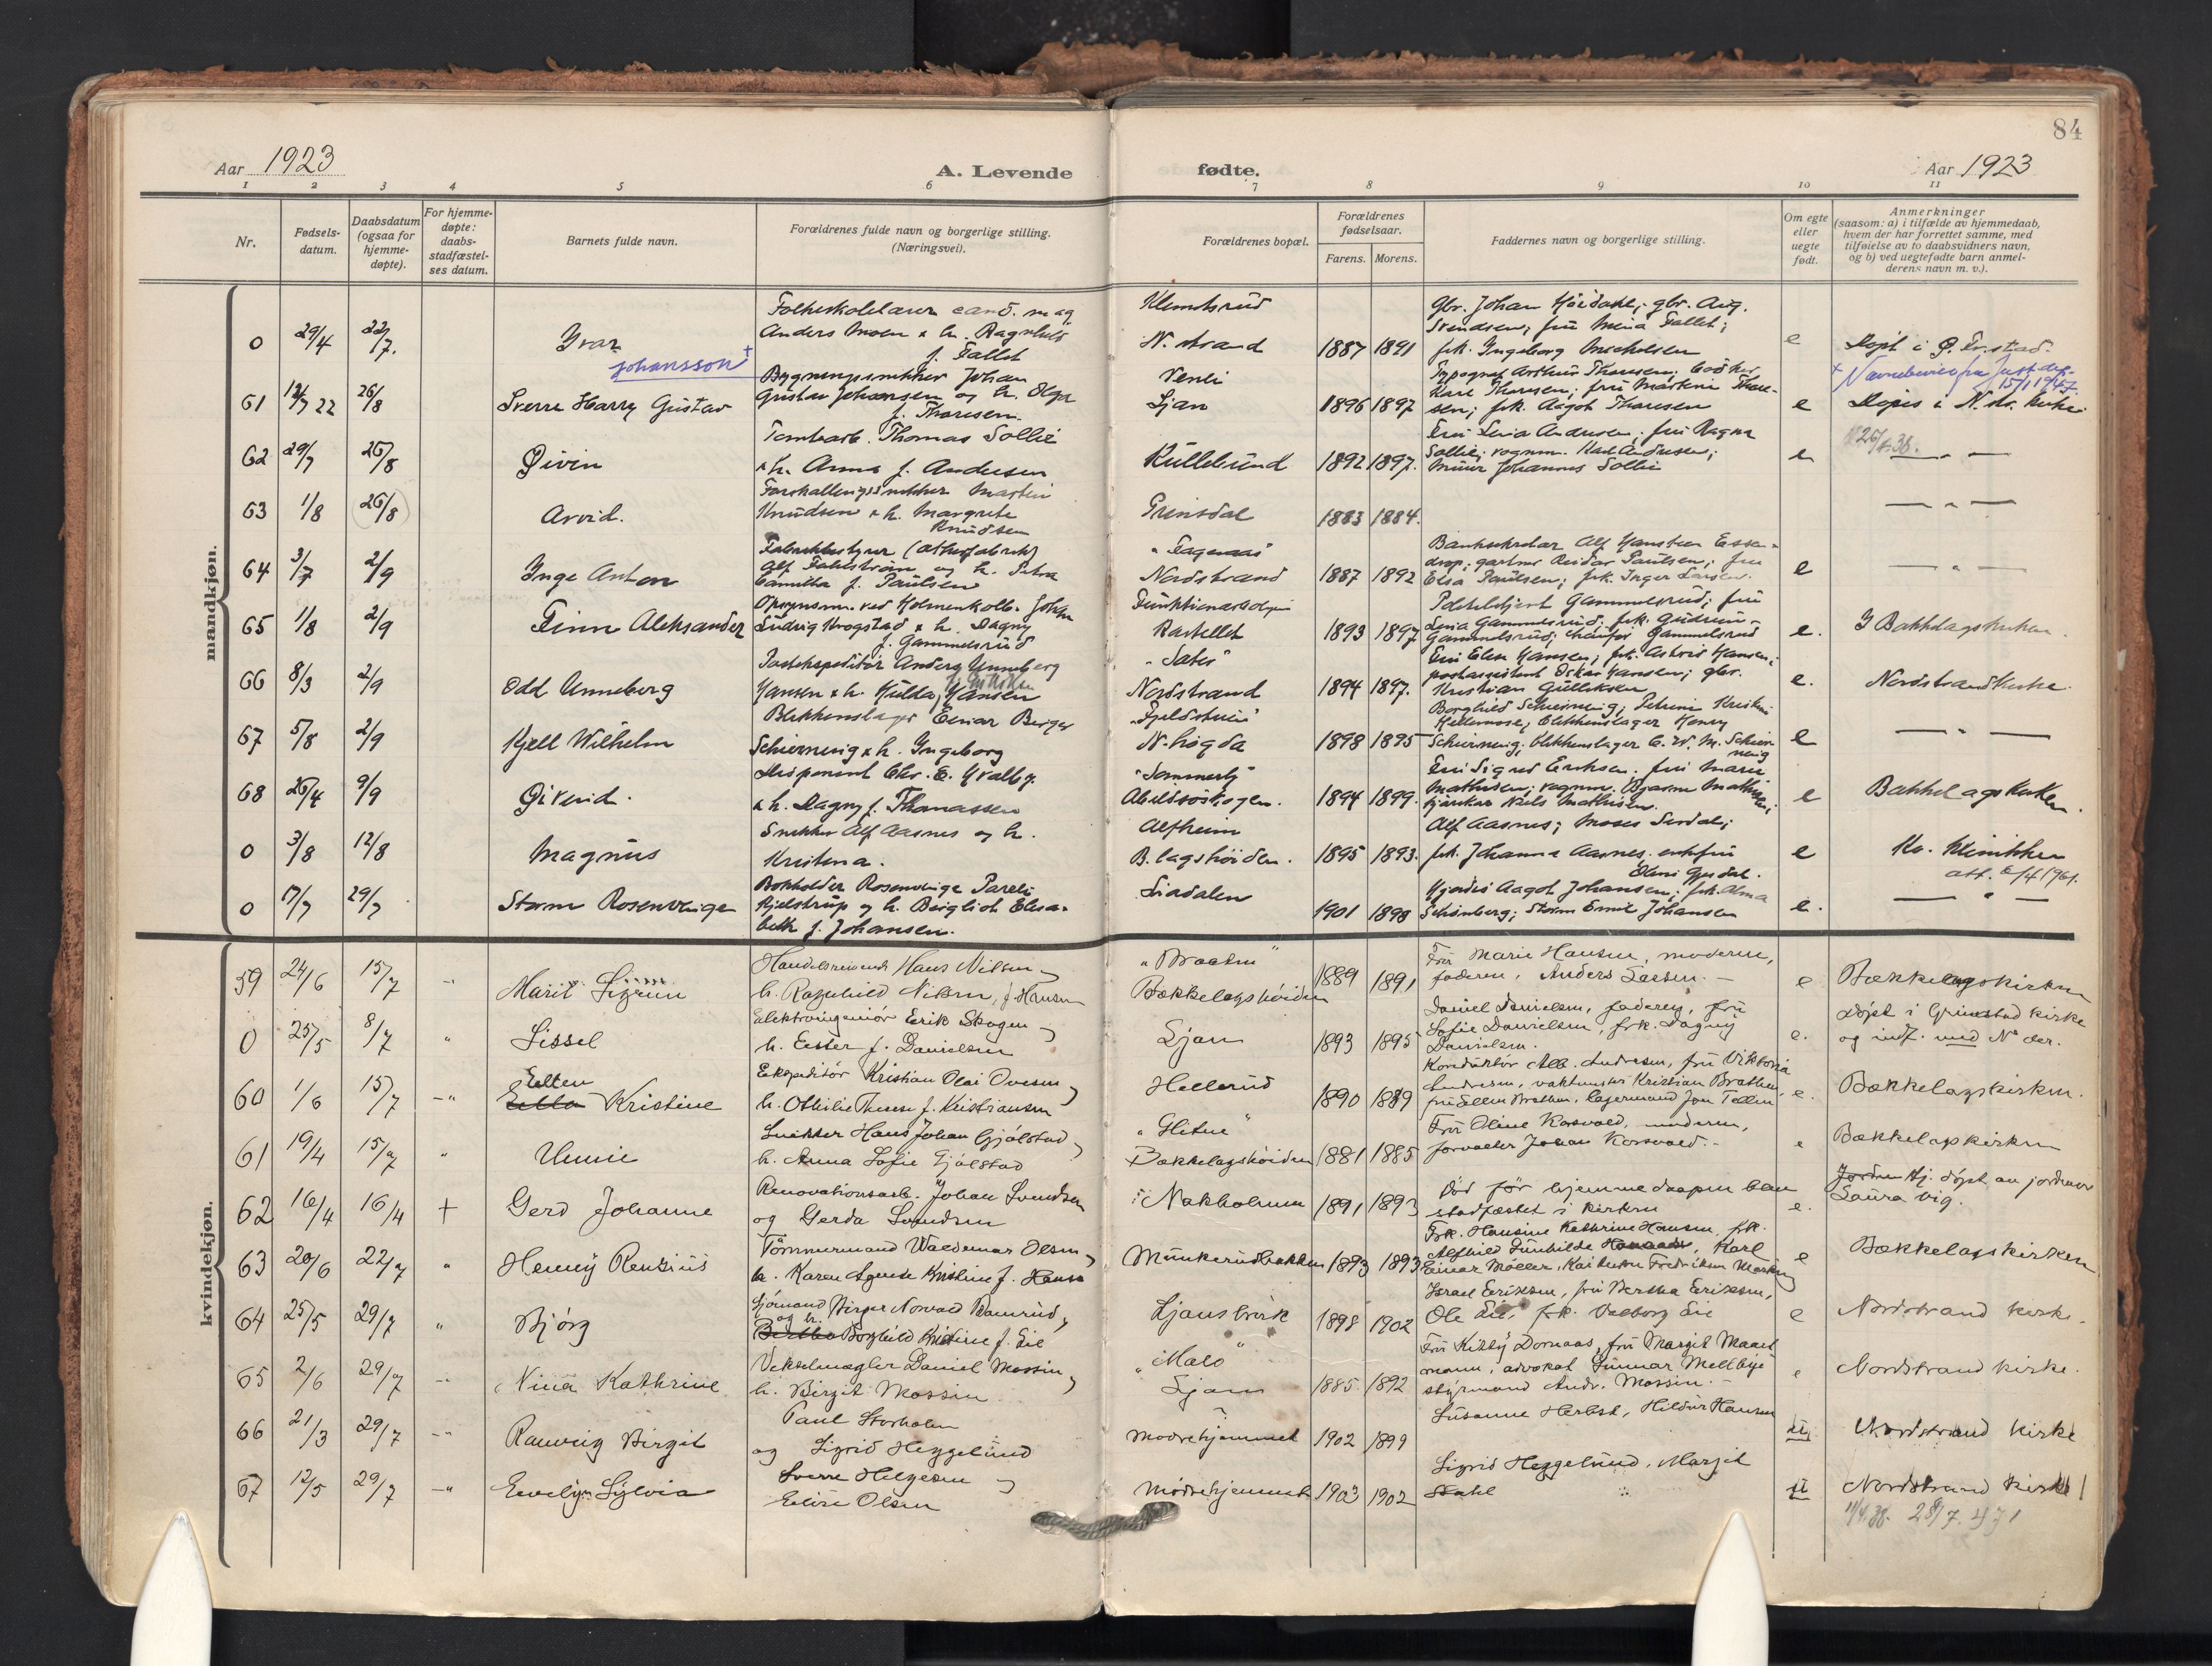 84
Aar 1923
A. Levende
fødte.
Aar 1923
1 2 3 4 5 6 7 8 9 10 11
Nr.
Fødsels-
datum.
Daabsdatum
(ogsaa for
hjemme-
døpte).
For hjemme-
døpte:
daabs-
stadfæstel-
ses datum.
Barnets fulde navn.
Forældrenes fulde navn og borgerlige stilling.
(Næringsvei).
Forældrenes bopæl.
Forældrenes
fødselsaar.
Farens. Morens.
Faddernes navn og borgerlige stilling.
Om egte
eller
uegte
født.
Anmerkninger
(saasom: a) i tilfælde av hjemmedaab,
hvem der har forrettet samme, med
tilføielse av to daabsvidners navn,
og b) ved uegtefødte barn anmel-
derens navn m. v.).
mandkjøn.
Folkeskolelærer cand. mag
Klemetsrud
Gbr. Johan Høidahl; gbr. Aug.
0 29/4 22/7. Ivar
Anders Moen & h. Ragnhild
f. Fallet
N. strand 1887 1891
Svendsen; fru Mina Fallet;
frk. Ingeborg Michelsen
e
Johansson +
61 12/7 22 26/8 Sverre Harry Gustav
Bygningssnekker Johan
Gustav Johansen og h. Olga
f. Thoresen.
Venli
Ljan 1896 1897
Typograf Arthur Thoresen;
Thoresen; fru Martine Thore-
sen; frk. Aagot Thoresen
e
+ Navnebevis fra Just.dep.
15/1 1947.
Døpt i N. str. kirke
62 29/7 26/8 Øivin
Tomtearb. Thomas Sollie
& h. Anna f. Andersen
Kullebund 1892 1897.
Sollie; vognm. Karl Andersen;
murer Johannes Sollie
e
— " —
63 1/8 26/8 Arvid.
Forskallingssnekker Martin
Knudsen & h. Margrete
Knudsen
Grinsdal 1883 1884.
— " —
64 3/7 2/9 Inge Anton
Alf Fahlstrøm og h. Petra
Camilla f. Paulsen
Nordstrand 1887 1892
Banksekretær Alf Hansteen Essen-
drop; gartner Reidar Paulsen; fru
Elsa Paulsen; frk. Inger Larsen.
e
— " —
65 1/8 2/9 Finn Aleksander
Opsynsm. ved Holmenkolb. Johan
Ludvig Krogstad & h. Dagny
f. Gammelsrud
Funktionærbolgen
Kastellet 1893 1897
Gammelsrud; fru
Lina Gammelsrud; frk. Gudrun
Gammelsrud; chaufør Gammelsrud
e.
I Bækkelagskirken.
66 8/3 2/9 Odd Unneberg
Postekspeditør Anders Unneberg
Hansen & h. Hulda Hansen
Nordstrand 1894 1897.
Fru Elise Hansen; frk. Astrid Hansen;
postassistent Oskar Hansen; gbr.
Kristian Gulliksen
e.
Nordstrand kirke.
67 5/8 2/9 Kjell Wilhelm
Blikkenslager Einar Birger
Schiernenig & h. Ingeborg
N. høgda 1898 1895
Borghild Schiernenig; Petrine Kristine
Hellemose; blikkenslager Henry
Schiernenig; blikkenslager C. W. M. Schier-
nenig
e
— " —
68 26/4 9/9 Øivind.
Disponent Chr. E. Hvalby.
& h. Dagny f. Thomassen
"Sommerly"
Abildsøskogen. 1894 1899.
Fru Sigrid Eriksen; fru Marie
Mathisen; vognm. Bjarne Mathisen;
Niels Mathisen.
e
Bækkelagskirken.
0 3/8 12/8 Magnus
Snekker Alf Aasnes og h.
Kristina.
Alfheim
B. lagshøiden. 1895 1893.
Alf Aasnes; Moses
frk. Johanna Aasnes; enkefru
e
Kv. Klinikken
0 17/7 29/7 Storm Rosenvinge
Bokholder Rosenvinge Pareli
Kjelstrup og h. Bergliot Elisa-
beth f. Johansen.
Liadalen 1901 1898
Hjørdis Aagot Johansen; frk. Alma
Schönberg; Storm Emil Johansen
e.
— " —
kvindekjøn.
59 24/6 15/7 Marit Sigrun
Handelsreisende Hans Nilsen
h. Ragnhild Nilsen, f. Hansen
"Braaten"
Bækkelagshøiden 1889 1891
Fru Marie Hansen, moderen,
faderen, Anders Larsen. —
e
Bækkelagskirken
0 25/5 8/7 " Sissel
Elektroingeniør Erik Skogen
h. Ester f. Danielsen
Ljan 1893 1895
Daniel Danielsen, faderen, fru
Sofie Danielsen, frk. Dagny
Danielsen.
e.
Døpt i Grimstad kirke
og indf. med No der.
60 1/6 15/7 —" Ellen
Ella Kristine
Ekspeditør Kristian Olai Ovesen
h. Othilie Therese f. Kristiansen
Hellerud 1890 1889
Konduktør Alb. Andresen, fru Viktoria
Andresen, vaktmester Kristian Brathen
fru Ellen Brathen, lagermand Jon Tellin
e.
Bækkelagskirken.
61 19/4 15/7 " Unnie
Snekker Hans Johan Gjølstad
h. Anna Sofie Gjølstad
"Glitne"
Bækkelagshøiden 1881 1885
Fru Oline Korsvold, moderen,
forvalter Johan Korsvold. —
e
Bækkelagskirken
62 16/4 16/4 + Gerd Johanne
Renovationsarb. Johan Svendsen
og Gerda Svendsen
Nakholmen 1891 1893
Død før hjemmedaapen blev
stadfæstet i kirken
e.
Hj. døpt av jordmor
Laura Vig.
63 20/6 22/7 " Henny Rensius
Tømmermand Waldemar Olsen
h. Karen Agnete Kristine f. Hansen
Munkerudbakken 1893 1893
Frk. Hansine Kathrine Hansen, frk.
Alfhild Gunhilde Karl
Einar Møller, Kai Anton Fredriksen
e
Bækkelagskirken
64 25/5 29/7 " Bjørg
Sjømand Birger Norvald Ramrud,
og h.
Bertha Borghild Kristine f. Lie
Ljansbruk 1898 1902
Israel Eriksen, fru Bertha Eriksen,
Ole Lie, frk. Valborg Lie
e
Nordstrand kirke.
65 2/6 29/7 Nina Kathrine
Vekselmægler Daniel Mossin
h. Birgit Mossin
"Malo"
Ljan 1885 1892
Fru Kitty Dornaas, fru Margit Maart-
mann, advokat Gunnar Mellbye
styrmand Andr. Mossin. —
e
Nordstrand kirke.
66 21/3 29/7 Ranveig Birgit
Paul Storholm
og Sigrid Heggelund
Mødrehjemmet 1902 1899
Susanne Herbst, Hildur Hansen
u
Nordstrand kirke
67 12/5 29/7 —" Evelyn Sylvia
Sverre Helgesen
Elise Olsen
Mødrehjemmet 1903 1902
Sigrid Heggelund, Margit
Stahl
u
Nordstrand kirke